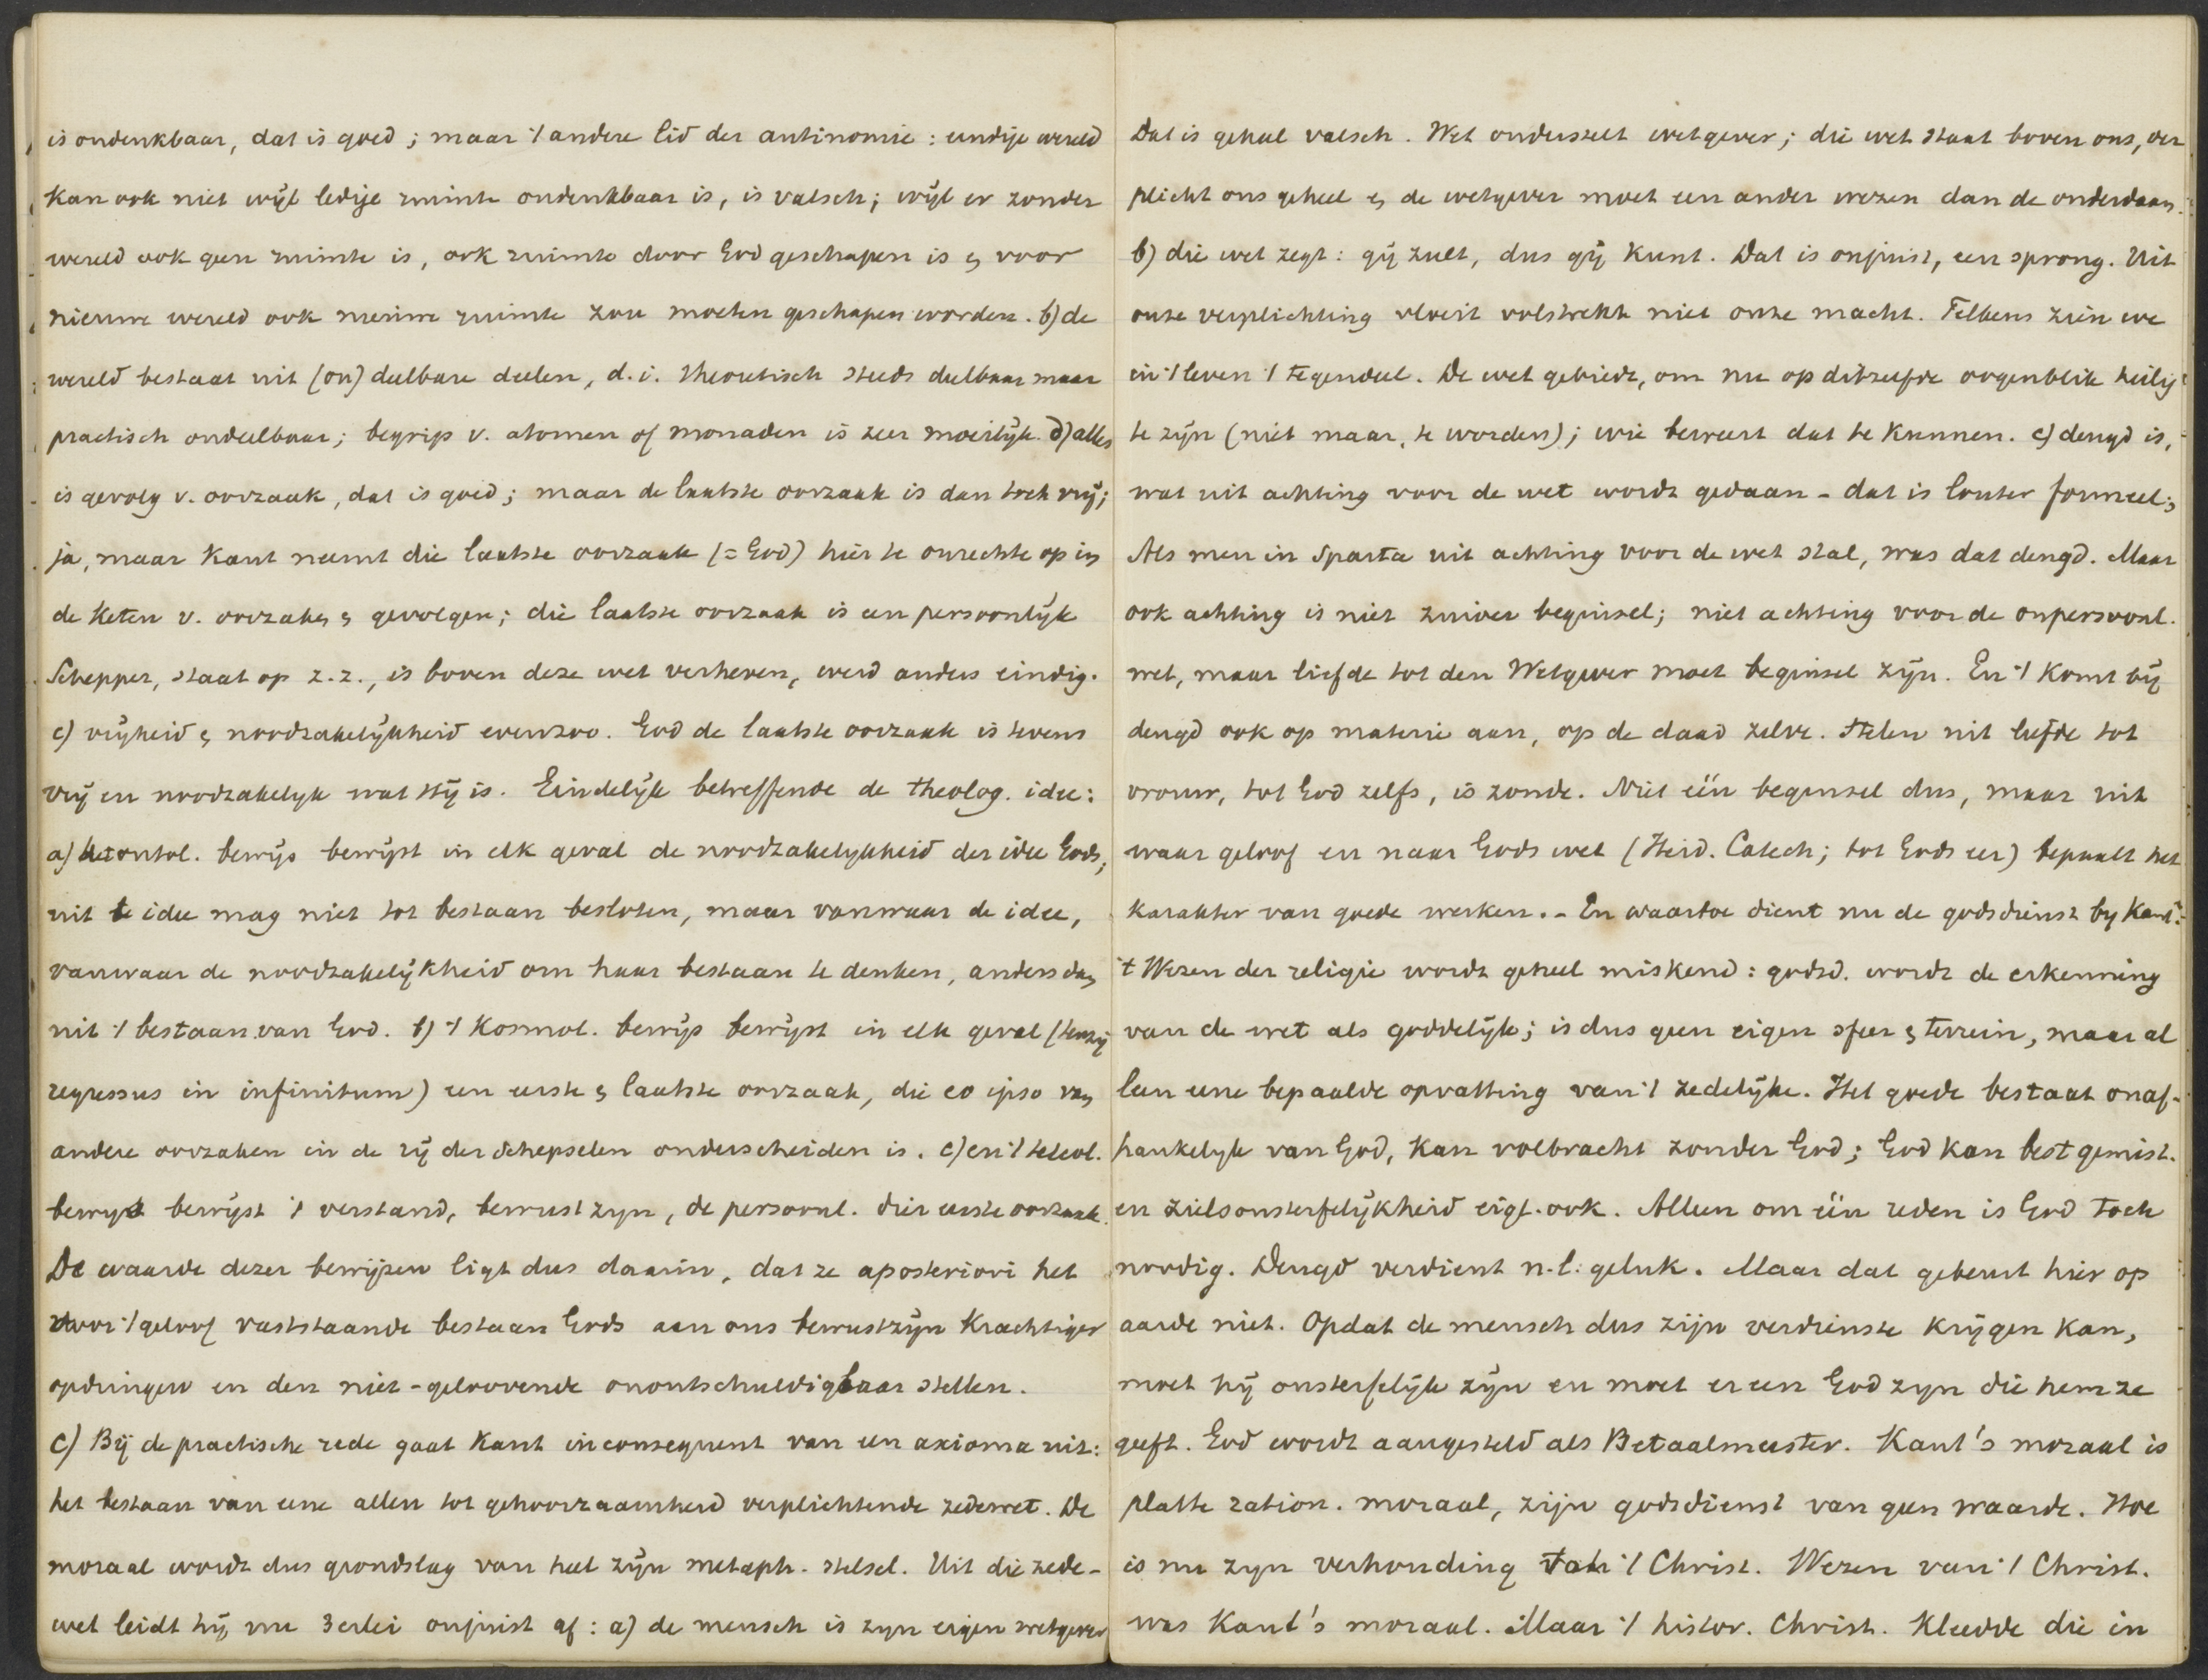 is ondenkbaar, dat is goed; maar 't andere lid der antinomie: eindige wereld
kan ook niet wijl ledige ruimte ondenkbaar is, is valsch; wijl er zonder
wereld ook geen ruimte is, ook ruimte door God geschapen is & voor
nieuwe wereld ook nieuwe ruimte zou moeten geschapen worden. b) de
wereld bestaat uit (on)deelbare deelen, d.i. theoretisch steeds deelbaar maar
practisch ondeelbaar; begrip v. atomen of monaden is zeer moeilijk. d) alles
is gevolg v. oorzaak, dat is goed; maar de laatste oorzaak is dan toch vrij;
ja, maar Kant neemt die laatste oorzaak (= God) hier te onrechte op in
de keten v. oorzaken & gevolgen; die laatste oorzaak is een persoonlijk
Schepper, staat op z.z., is boven deze wet verheven, werd anders eindig.
c) vrijheid & noodzakelijkheid evenzoo. God de laatste oorzaak is tevens
vrij en noodzakelyk wat Hij is. Eindelijk betreffende de theolog. idee:
a) het ontol. bewijs bewijst in elk geval de noodzakelykheid der idee Gods;
uit de idee mag niet tot bestaan besloten, maar vanwaar de idee,
vanwaar de noodzakelijkheid om haar bestaan te denken, anders dan
uit 't bestaan van God. b) 't Kosmol. bewijs bewijst in elk geval (tenzij
regressus in infinitum) een eerste & laatste oorzaak, die eo ipso van
andere oorzaken in de rij der schepselen onderscheiden is. c) en 't teleol.
bewys bewijst 't verstand, bewust zyn, de persoonl. dier eerste oorzaak.
De waarde dezer bewijzen ligt dus daarin, dat ze aposteriori het
door 't geloof vaststaande bestaan Gods aan ons bewustzijn krachtiger
opdringen en den niet-geloovende onontschuldigbaar stellen.
C) Bij de practische rede gaat Kant inconsequent van een axioma uit:
het bestaan van eene allen tot gehoorzaamheid verplichtende zedewet. De
moraal wordt dus grondslag van heel zijn metaph. stelsel. Uit die zede-
wet leidt hij nu 3erlei onjuist af: a) de mensch is zyn eigen wetgever
Dat is geheel valsch. Wet onderstelt wetgever; die wet staat boven ons, ver
plicht ons geheel & de wetgever moet een ander wezen dan de onderdaan.
b) die wet zegt: gij zult, dus gij kunt. Dat is onjuist, een sprong. Uit
onze verplichting vloeit volstrekt niet onze macht. Telkens zien we
in 't leven 't tegendeel. De wet gebiedt, om nu op ditzelfde oogenblik heilig
te zijn (niet maar, te worden); wie beweert dat te kunnen. c) deugd is,
wat uit achting voor de wet wordt gedaan - dat is louter formeel;
Als men in Sparta uit achting voor de wet stal, was dat deugd. Maar
ook achting is niet zuiver beginsel; niet achting voor de onpersoonl.
wet, maar liefde tot den Wetgever moet beginsel zijn. En 't komt bij
deugd ook op materie aan, op de daad zelve. Stelen uit liefde tot
vrouw, tot God zelfs, is zonde. Niet één beginsel dus, maar uit
waar geloof en naar Gods wet (Heid. Catech; tot Gods eer) bepaalt het
karakter van goede werken. - En waartoe dient nu de godsdienst by Kant?
't Wezen der religie wordt geheel miskend: godsd. wordt de erkenning
van de wet als goddelijk; is dus geen eigen sfeer & terrein, maar al
leen eene bepaalde opvatting van 't zedelijke. Het goede bestaat onaf-
hankelyk van God, kan volbracht zonder God; God kan best gemist.
en zielsonsterfelijkheid eigl. ook. Alleen om één reden is God toch
noodig. Deugd verdient n.l. geluk. Maar dat gebeurt hier op
aarde niet. Opdat de mensch dus zijn verdienste krijgen kan,
moet hij onsterfelijk zijn en moet er een God zyn die hem ze
geeft. God wordt aangesteld als Betaalmeester. Kant's moraal is
platte ration. moraal, zijn godsdienst van geen waarde. Hoe
is nu zyn verhouding tot 't Christ. Wezen van 't Christ.
was Kant's moraal. Maar 't histor. Christ. kleedde die in